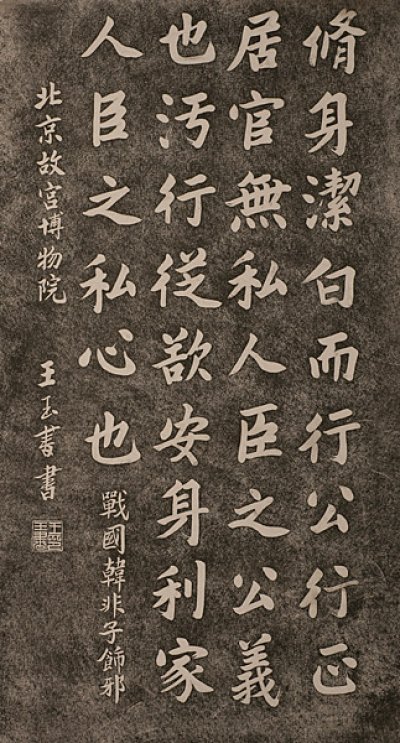 脩身潔白而行公行正
居官無私人臣之公義
也污行從欲安身利家
人臣之私心也
戰國韓非子飾邪
北京故宮博物院 王玉書書